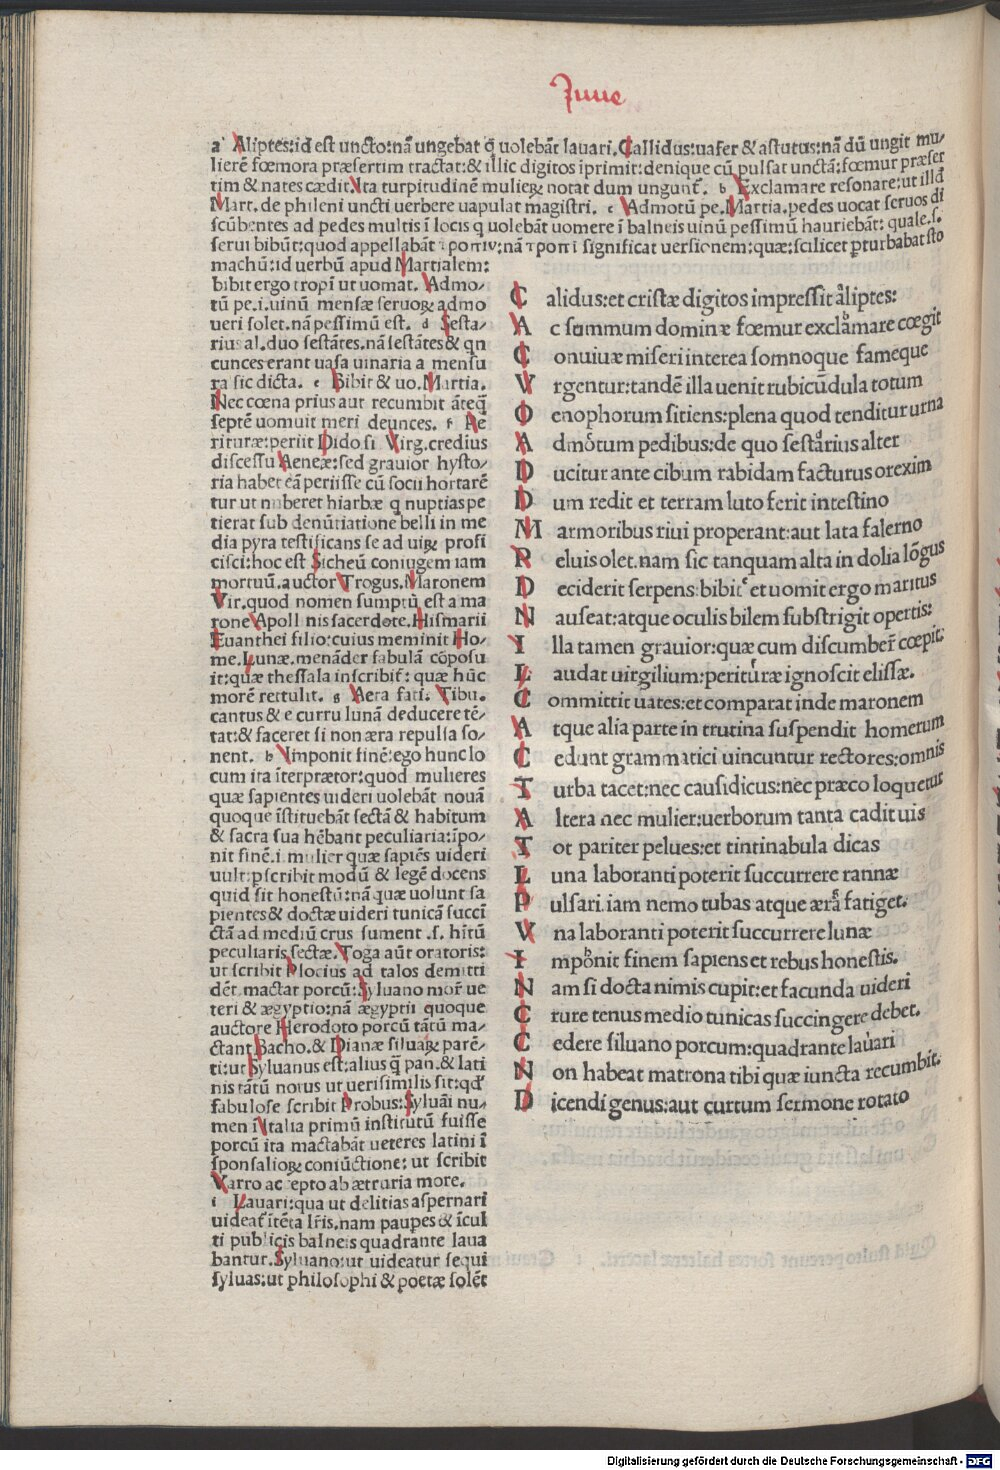 Juue
a Aliptes:id est uncto:nã ungebãt q̃ uolebãt lauari. Callidus:uafer & astutus:nã dũ ungit mu-
lierẽ fœmora præsertim tractat:& illic digitos ĩprimit:denique cũ pulsat unctã:fœmur præser
tim & nates cædit. Ita turpitudinẽ mulieꝝ notat dum ungunt̃. b Exclamare resonare:ut illd̃
Mart. de phileni uncti uerbere uapulat magistri. c Admotũ pe. Martia. pedes uocat seruos di
scũbentes ad pedes multis ĩ locis q uolebãt uomere ĩ balneis uinũ pessimũ hauriebãt: quale .s.
serui bibũt:quod appellabãt significat uersionem:quæ:scilicet ꝑturbabat sto
machũ:id uerbũ apud Martialem:
bibit ergo tropĩ ut uomat. Admo-
tũ pe.i.uinũ mensæ seruoꝝ admo
ueri solet. nã pessimũ est. d Sesta-
rius al. duo sestãtes. nã sestãtes & qn
cunces erant uasa uinaria a mensu
ra sic dicta. e Bibit & uo. Martia.
Nec cœna prius aut recumbit ãteq̃
septẽ uomuit meri deunces. f Pe
rituræ:periit Dido si Virg. credius
discessu Aeneæ:sed grauior hysto-
ria habet eã periisse cũ socii hortarẽ
tur ut nuberet hiarbæ q nuptias pe
tierat sub denũtiatione belli in me
dia pyra testificans se ad uiꝝ profi
cisci:hoc est Sicheũ coniugem iam
mortuũ. auctor Trogus. Maronem
Vir. quod nomen sumptũ est a ma
rone Apollinis sacerdote. Hismarii
Euanthei filio:cuius meminit Ho-
me. Lunæ. menãder fabulã cõposu
it:quæ thessala inscribit̃: quæ hũc
morẽ rettulit. g Aera fati. Tibu.
cantus & e curru lunã deducere tẽ-
tat:& faceret si non æra repulsa so-
nent. h Imponit finẽ:ego hunc lo
cum ita ĩterprætor:quod mulieres
quæ sapientes uideri uolebãt nouã
quoque ĩstituebãt sectã & habitum
& sacra sua hẽbant peculiaria:ĩpo-
nit finẽ.i.mulier quæ sapiẽs uideri
uult:pscribit modũ & legẽ docens
quid sit honestũ:nã quæ uolunt sa
pientes & doctæ uideri tunicã succĩ
ctã ad mediũ crus sument .s. hĩtũ
peculiaris sectæ. Toga aũt oratoris:
ut scribit Plocius ad talos demitti
dẽt. mactat porcũ: Syluano mor̃ ue
teri & ægyptio:nã ægyptii quoque
auctore Herodoto porcũ tãtũ ma-
ctant Bacho. & Dianæ siluaꝝ parẽ-
ti:ut Syluanus est:alius q̃ pan. & lati
nis tãtũ notus ut uerisimilis sit:qđ
fabulose scribit Probus: Syluãi nu-
men ĩ Italia primũ institutũ fuisse
porcũ ita mactabãt ueteres latini ĩ
sponsalioꝝ coniũctione: ut scribit
Varro accepto ab ætruria more.
i Lauari:qua ut delitias aspernari
uideat̃ ĩtẽta lr̃is. nam paupes & ĩcul
ti publicis balneis quadrante laua
bantur. Syluano:ut uideatur sequi
syluas:ut philosophi & poetæ solẽt
C alidus:et cristæ digitos impressit aliptes:
A c summum dominæ fœmur exclamare coegit
C onuiuæ miseri interea somnoque fameque
V rgentur:tandẽ illa uenit rubicũdula totum
O enophorum sitiens:plena quod tenditur urna
A dmotum pedibus:de quo sestarius alter
D ucitur ante cibum rabidam facturus orexim
D um redit et terram luto ferit intestino
M armoribus riui properant:aut lata falerno
P eluis olet. nam sic tanquam alta in dolia lõgus
D eciderit serpens:bibit et uomit ergo maritus
N auseat:atque oculis bilem substrigit opertis:
I lla tamen grauior:quæ cum discumber̃ cœpit:
L audat uirgilium:perituræ ignoscit elissæ.
C ommittit uates:et comparat inde maronem
A tque alia parte in trutina suspendit homerum
C edunt grammatici uincuntur rectores:omnis
T urba tacet:nec causidicus:nec præco loquetur
A ltera nec mulier:uerborum tanta cadit uis
T ot pariter pelues:et tintinabula dicas
L una laboranti poterit succurrere rannæ
P ulsari. iam nemo tubas atque æra fatiget.
V na laboranti poterit succurrere lunæ
I mponit finem sapiens et rebus honestis.
N am si docta nimis cupit:et facunda uideri
C rure tenus medio tunicas succingere debet.
C edere siluano porcum:quadrante lauari
N on habeat matrona tibi quæ iuncta recumbit.
D icendi genus:aut curtum sermone rotato
Digitalisierung gefördert durch die Deutsche Forschungsgemeinschaft - DFG